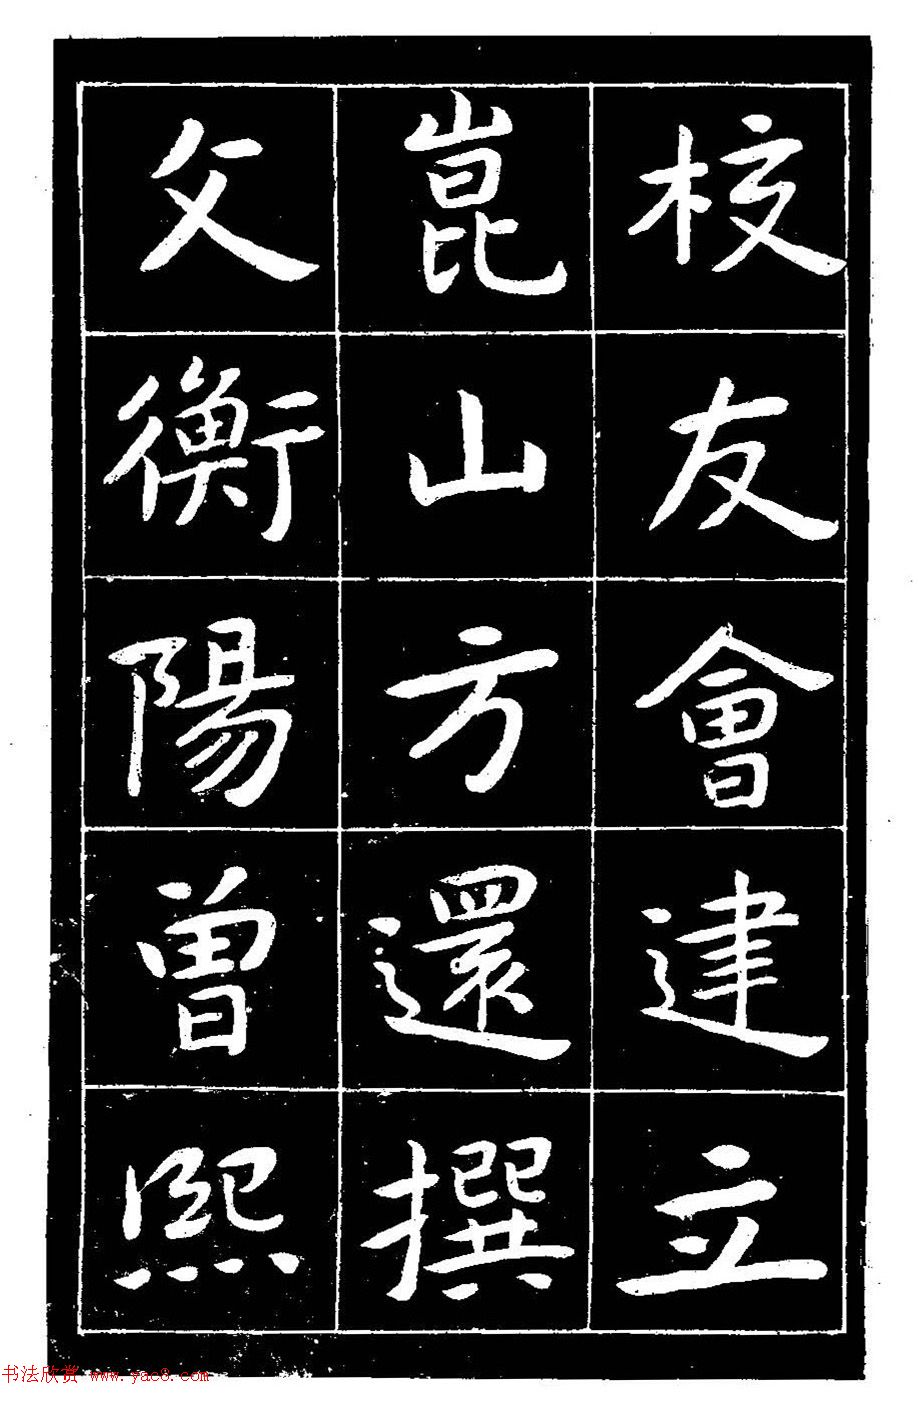 校友會建立
崑山方還撰
文衡陽曾熙
书法欣赏 www.yac8.com